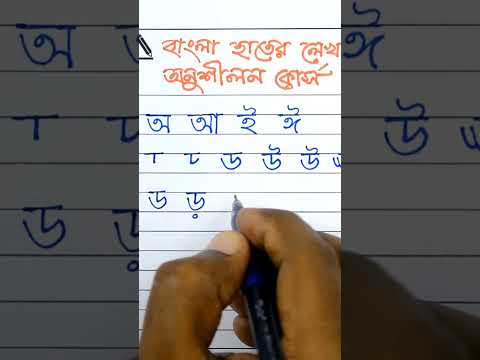 বাংলা হাতের লেখ
অনুশীলন কোর্স
অ আ ই ঈ
ড উ উ
ড ড়